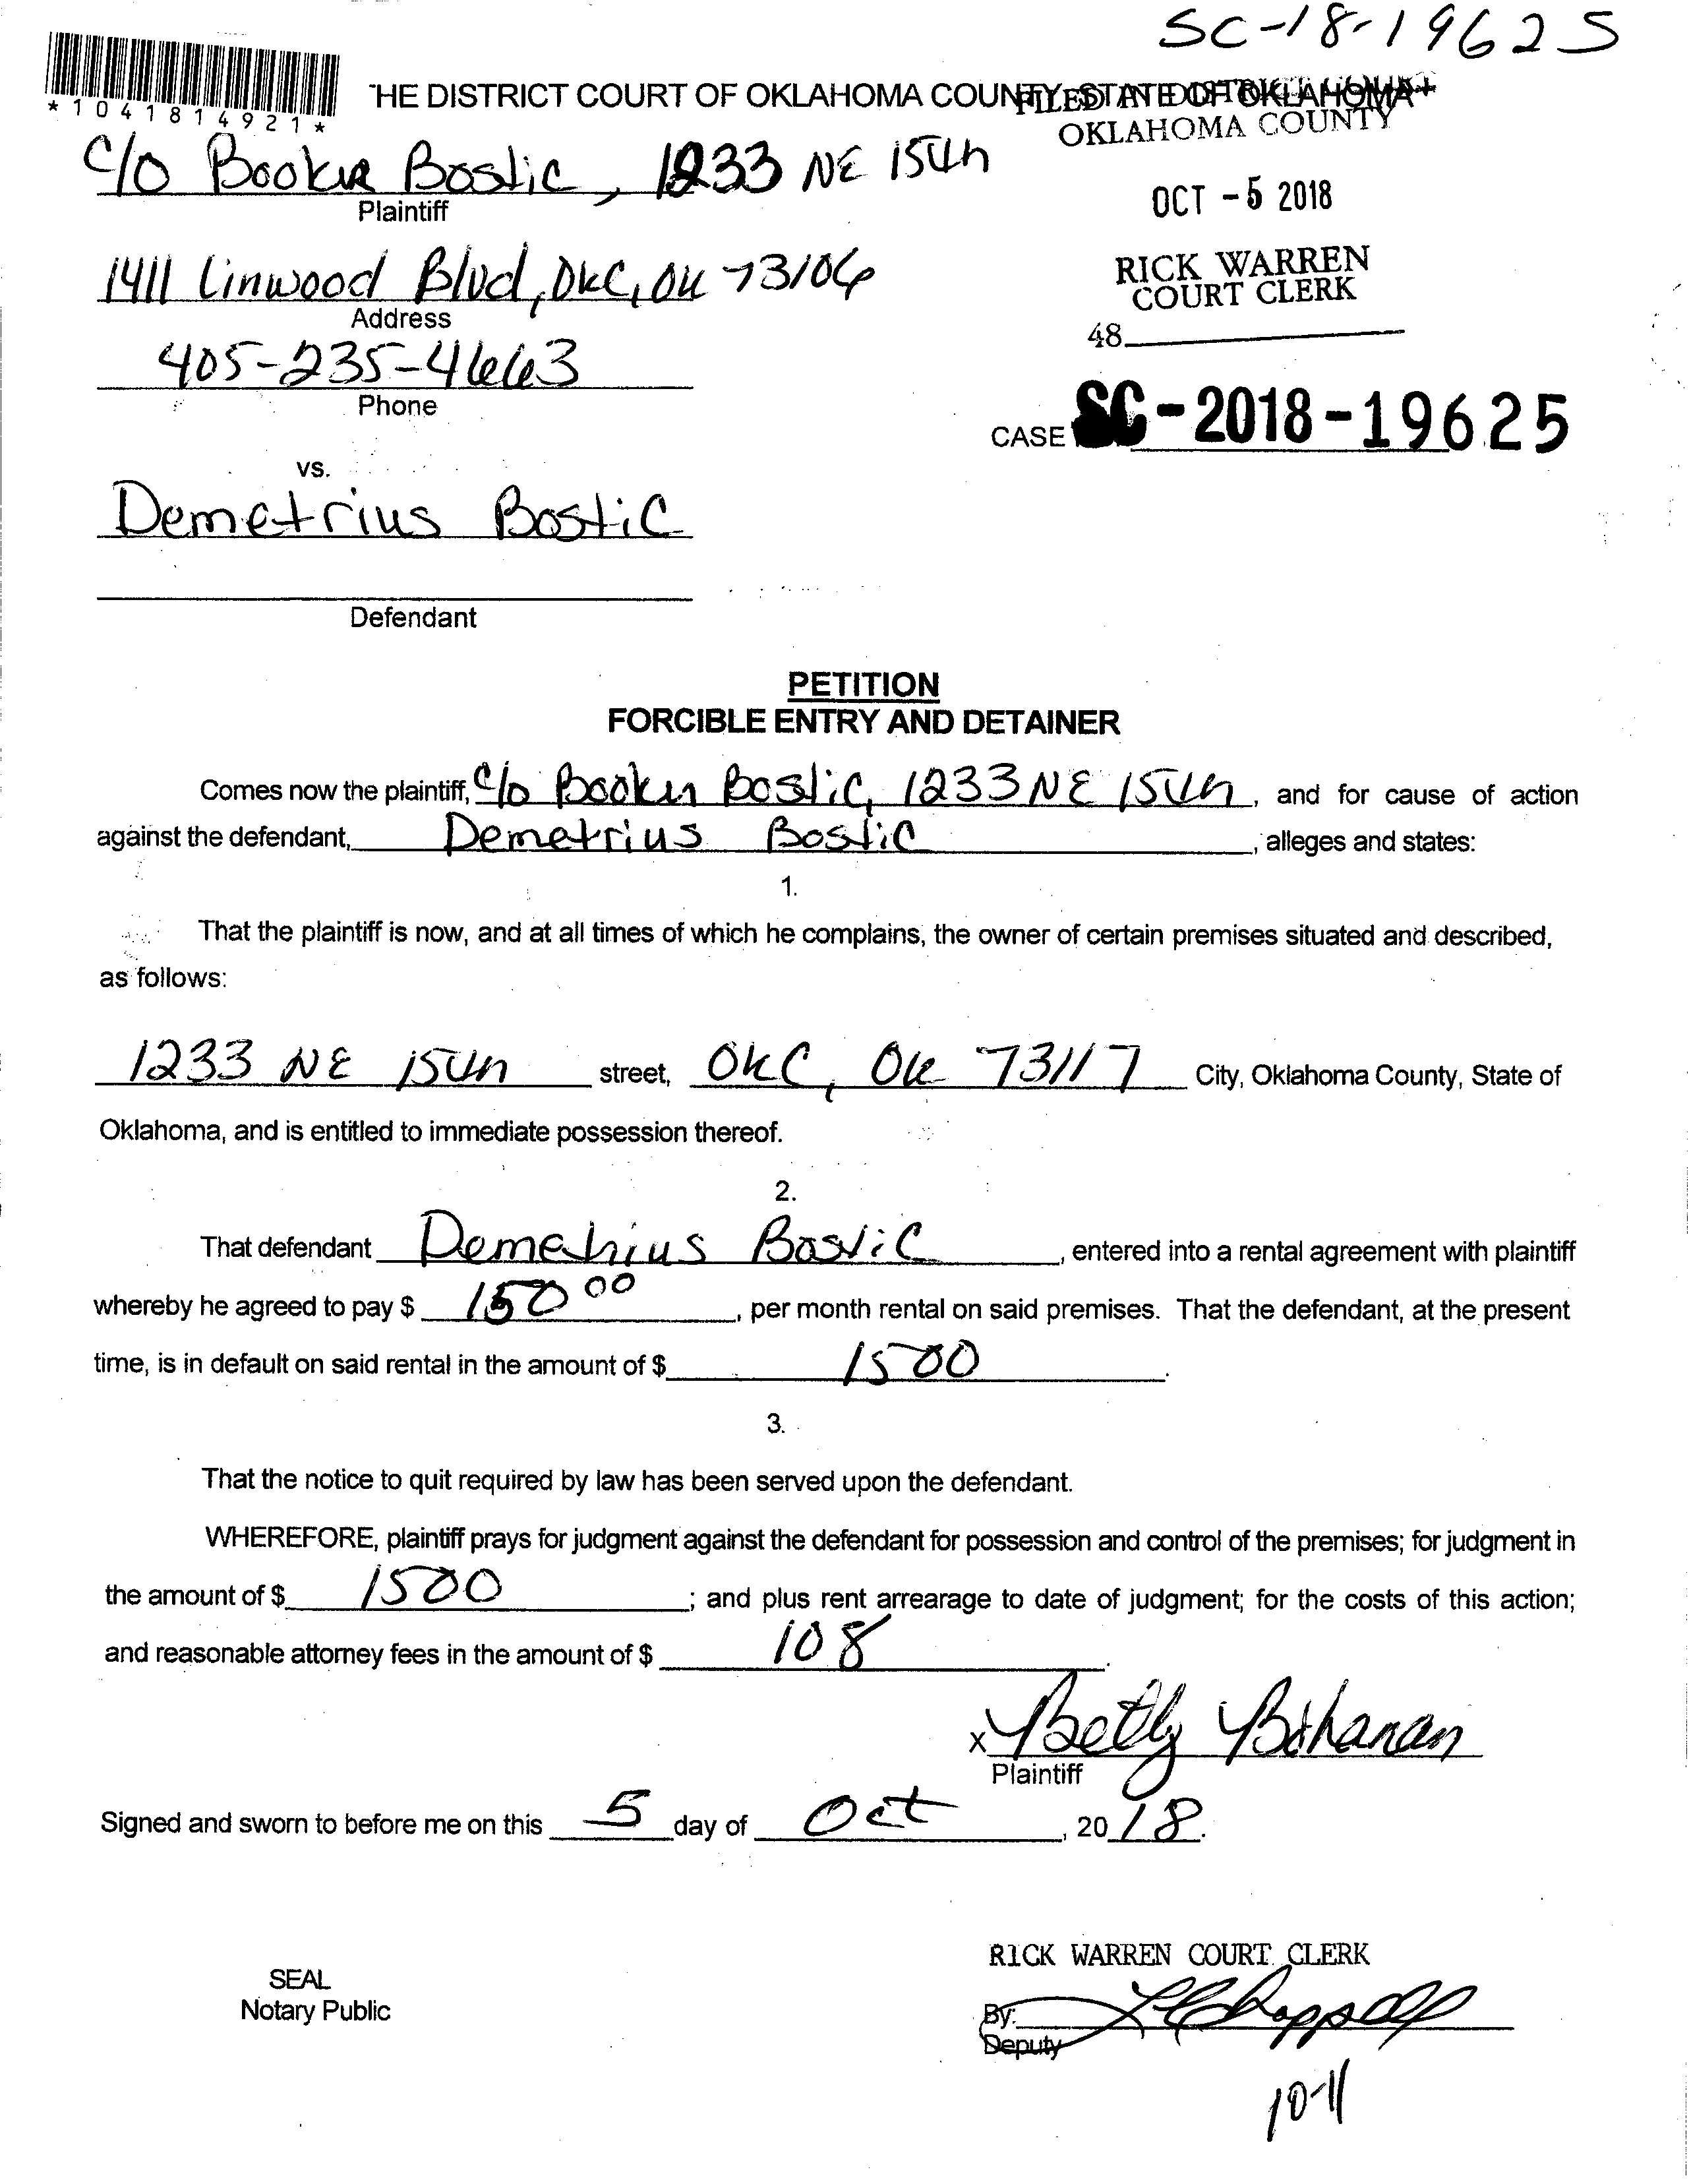 SC-18-19625
*1041814921*
THE DISTRICT COURT OF OKLAHOMA COUNTY, STATE OF OKLAHOMA
FILED IN DISTRICT COURT
OKLAHOMA COUNTY
C/O Booker Bostic, 1233 NE 15th
Plaintiff
OCT -5 2018
1411 Linwood Blvd, OKC, OK 73106
Address
RICK WARREN
COURT CLERK
405-235-4663
Phone
48
CASE SC-2018-19625
vs.
Demetrius Bostic
Defendant
PETITION
FORCIBLE ENTRY AND DETAINER
Comes now the plaintiff, C/o Booker Bostic, 1233 NE 15th, and for cause of action
against the defendant, Demetrius Bostic, alleges and states:
1.
That the plaintiff is now, and at all times of which he complains, the owner of certain premises situated and described,
as follows:
1233 NE 15th street, OKC, OK 73117 City, Oklahoma County, State of
Oklahoma, and is entitled to immediate possession thereof.
2.
That defendant Demetrius Bostic, entered into a rental agreement with plaintiff
whereby he agreed to pay $ 150 00, per month rental on said premises. That the defendant, at the present
time, is in default on said rental in the amount of $ 1500.
3.
That the notice to quit required by law has been served upon the defendant.
WHEREFORE, plaintiff prays for judgment against the defendant for possession and control of the premises; for judgment in
the amount of $ 1500; and plus rent arrearage to date of judgment; for the costs of this action;
and reasonable attorney fees in the amount of $ 108.
x Betty Bohanan
Plaintiff
Signed and sworn to before me on this 5 day of Oct, 2018.
RICK WARREN COURT CLERK
SEAL
Notary Public
By:
Deputy
10-11